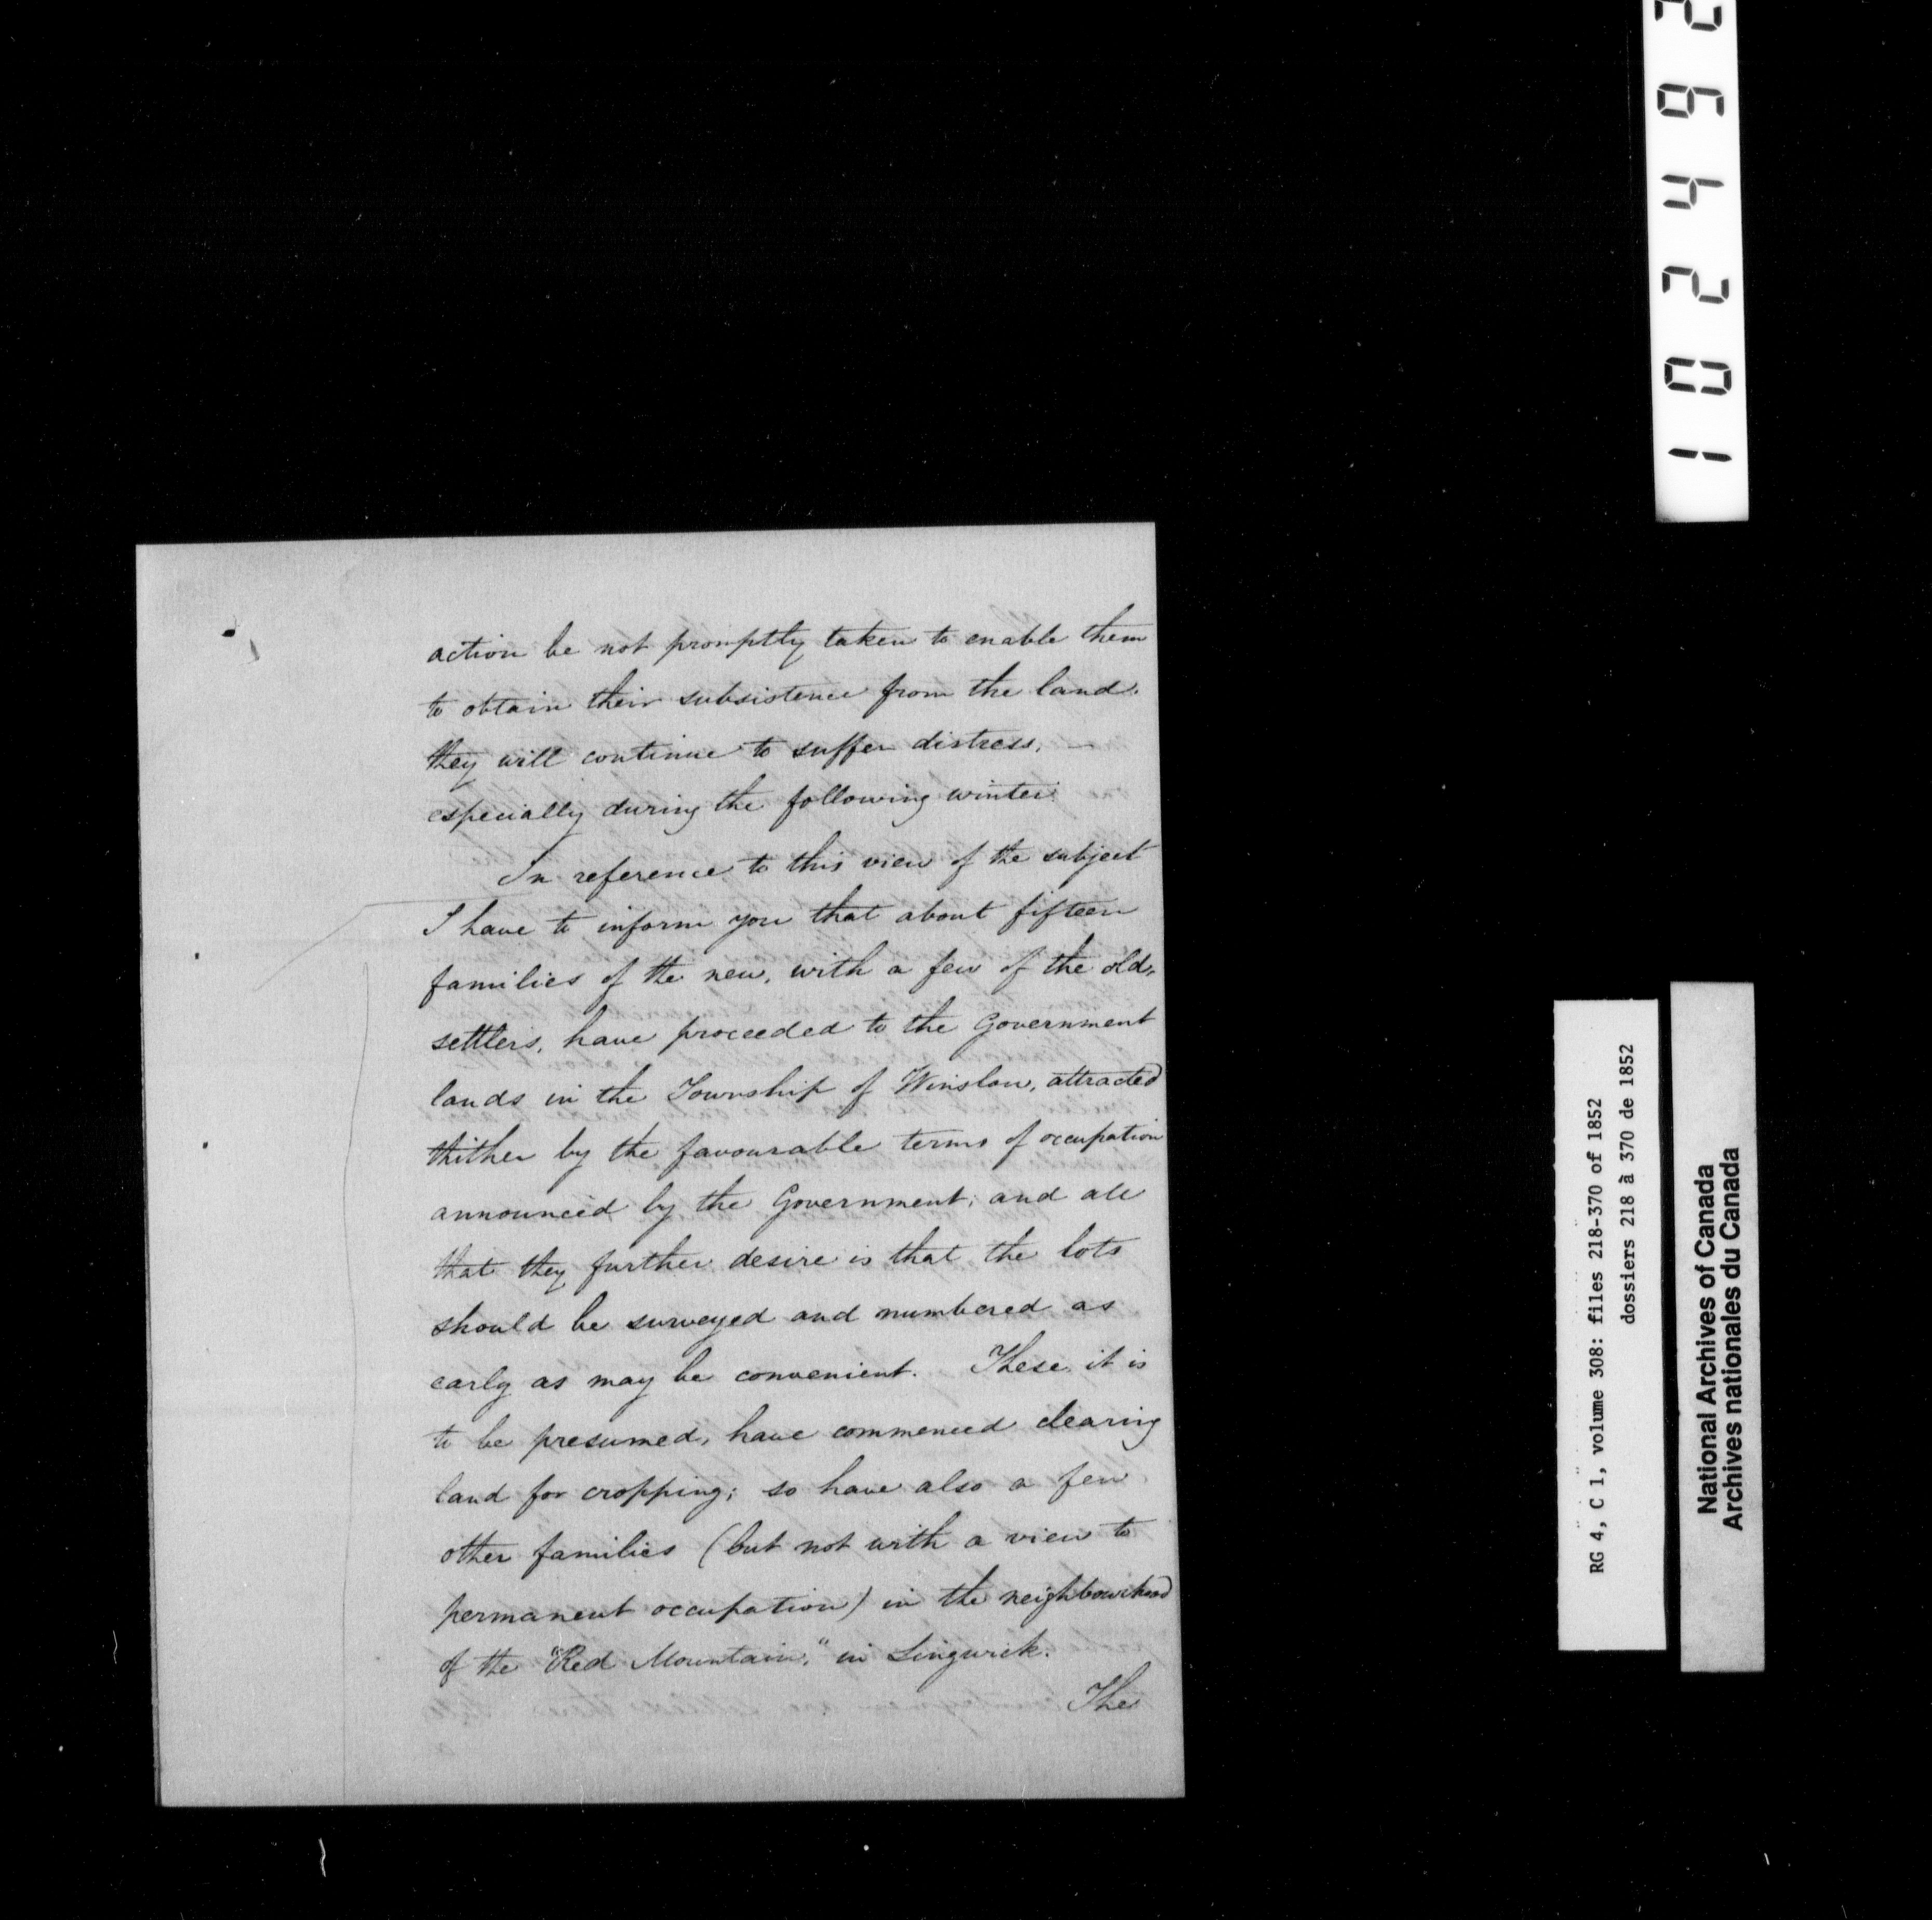 action be not promptly taken to enable them
to obtain their subsistence from the land.
they will continue to suffer distress, —
especially during the following winter.
In reference to this view of the subject
I have to inform you that about fifteen
families of the new, with a few of the old,
settlers, have proceeded to the Government
lands in the Township of Winslow, attracted
thither by the favourable terms of occupation
announced by the Government; and all
that they further desire is that the lots
should be surveyed and numbered as
early as may be convenient. These it is
to be presumed, have commenced clearing
land for cropping; so have also a few
other families (but not with a view to
permanent occupation) in the neighbourhood
of the "Red Mountain," in Lingwick.
The
102492
RG 4, C 1, volume 308: files 218-370 of 1852
dossiers 218 à 370 de 1852
National Archives of Canada
Archives nationales du Canada